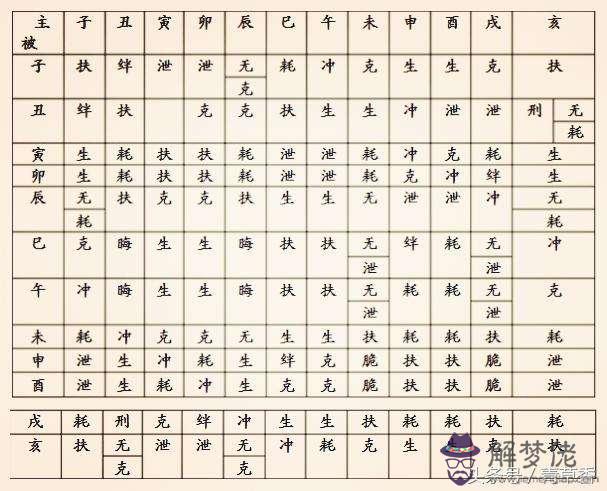 主 子 丑 寅 卯 辰 巳 午 未 申 酉 戌 亥
被
子 扶 绊 泄 泄 无 耗 冲 克 生 生 克 扶
克
丑 绊 扶 克 克 扶 生 生 冲 泄 泄 刑 无
耗
寅 生 耗 扶 扶 耗 泄 泄 耗 冲 克 耗 生
卯 生 耗 扶 扶 耗 泄 泄 耗 克 冲 绊 生
辰 无 扶 克 克 扶 生 生 无 泄 泄 冲 无
耗 耗
巳 克 晦 生 生 晦 扶 扶 无 绊 耗 无 冲
泄 泄
午 冲 晦 生 生 晦 扶 扶 无 耗 耗 无 克
泄 泄
未 耗 冲 克 克 无 生 生 扶 耗 耗 扶 耗
申 泄 生 冲 耗 生 绊 克 脆 扶 扶 脆 泄
酉 泄 生 耗 冲 生 克 克 脆 扶 扶 脆 泄
戌 耗 刑 克 绊 冲 生 生 扶 耗 耗 扶 耗
亥 扶 无 泄 泄 无 冲 耗 克 生 生 扶
克 克
解梦佬